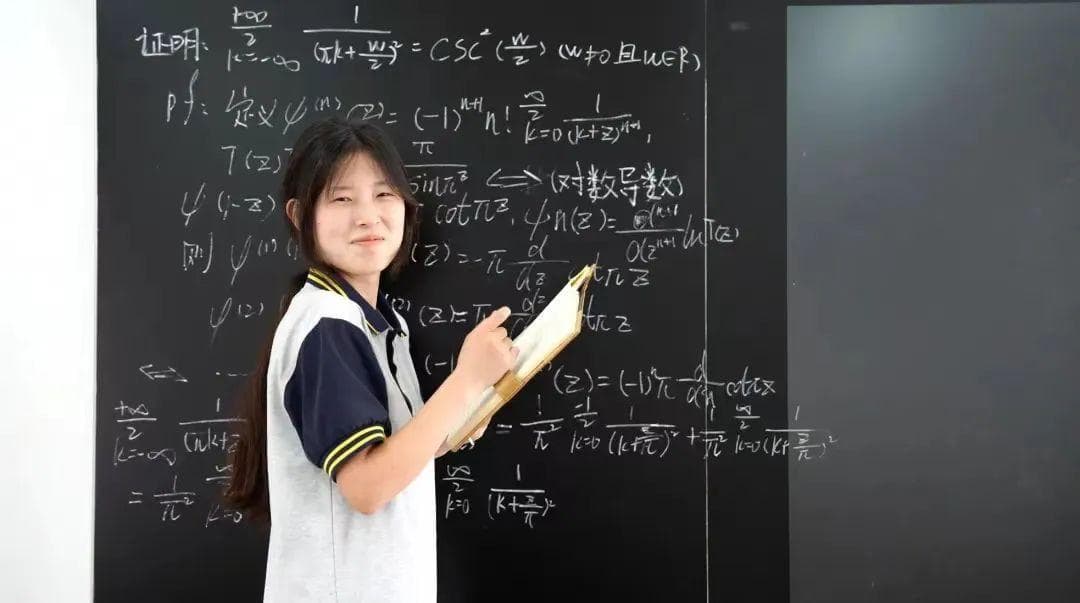 证明: +∞/2 k=-∞ 1/(πk+w/2)² = csc²(w/2) (w≠0且w∈R)
pf: 定义ψ⁽ⁿ⁾(z)=(-1)ⁿ⁺¹n! ∞/2 k=0 1/(k+z)ⁿ⁺¹,
T(z) π/sinπz ⟺ (对数导数)
ψ(1-z) cotπz, ψn(z)= dⁿ⁺¹/d(zⁿ⁺¹ lnT(z)
则 ψ⁽¹⁾( (z)=-π d/dz cotπz
ψ⁽²⁾ ⁽²⁾(z)=π cotπz
⟺ ⋯ (-1) (z)=(-1)ⁿπ cotπz
+∞/2 k=-∞ 1/(πk+z = 1/π² -1/2 k=0 1/(k+z/π)² + 1/π² ∞/2 k=0 1/(k+z/π)²
= 1/π² ∞/2 k=0 ∞/2 k=0 1/(k+z/π)²